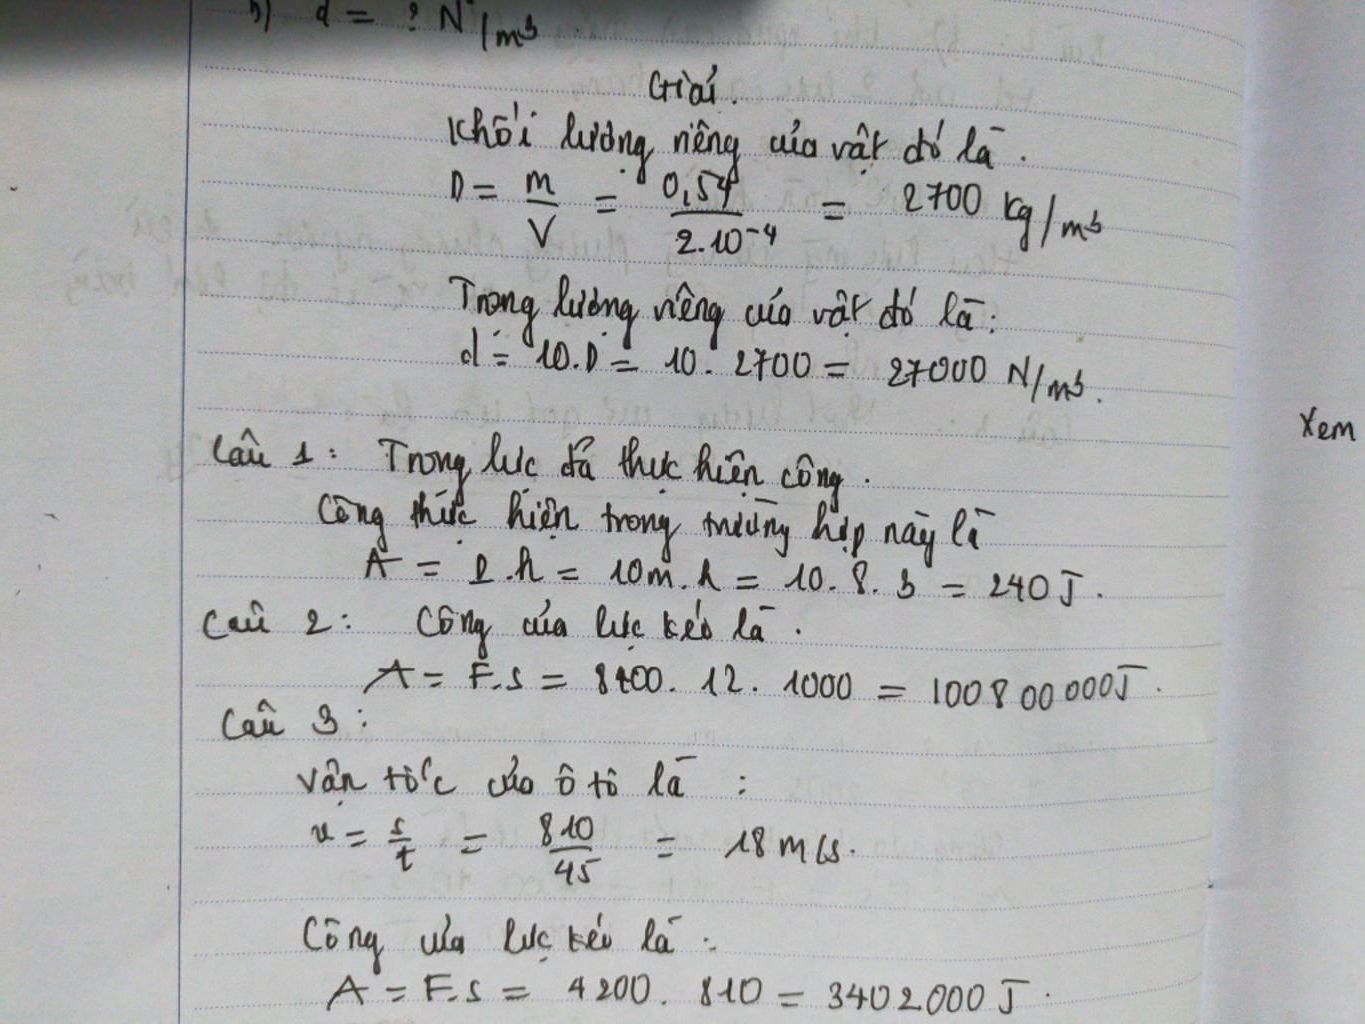 b) d = ? N/m³
Giải.
Khối lượng riêng của vật đó là.
D = m/V = 0,54/2.10⁻⁴ = 2700 kg/m³
Trọng lượng riêng của vật đó là:
d = 10.D = 10. 2700 = 27000 N/m³.
Xem
Câu 1: Trọng lực đã thực hiện công.
Công thực hiện trong trường hợp này là
A = P.h = 10m.h = 10. 8. 3 = 240 J.
Câu 2: Công của lực kéo là.
A = F.s = 8400. 12. 1000 = 100800000J.
Câu 3:
Vận tốc của ô tô là:
v = s/t = 810/45 = 18 m/s.
Công của lực kéo là:
A = F.s = 4200. 810 = 3402000 J.